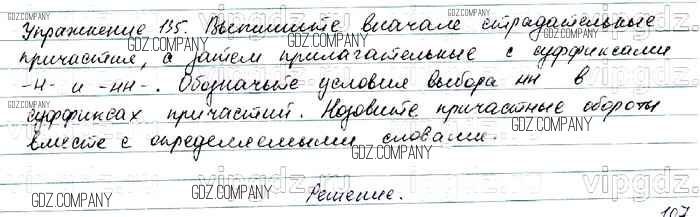 Упражнение 135. Выпишите вначале страдательные
причастия, а затем прилагательные с суффиксами
-н- и -нн-. Обозначьте условия выбора нн в
суффиксах причастий. Назовите причастные обороты
вместе с определяемыми словами.
Решение.
107
GDZ.COMPANY
GDZ.COMPANY
GDZ.COMPANY
GDZ.COMPANY
GDZ.COMPANY
GDZ.COMPANY
GDZ.COMPANY
GDZ.COMPANY
GDZ.COMPANY
GDZ.COMPANY
GDZ.COMPANY
vipgdz.ru
vipgdz.ru